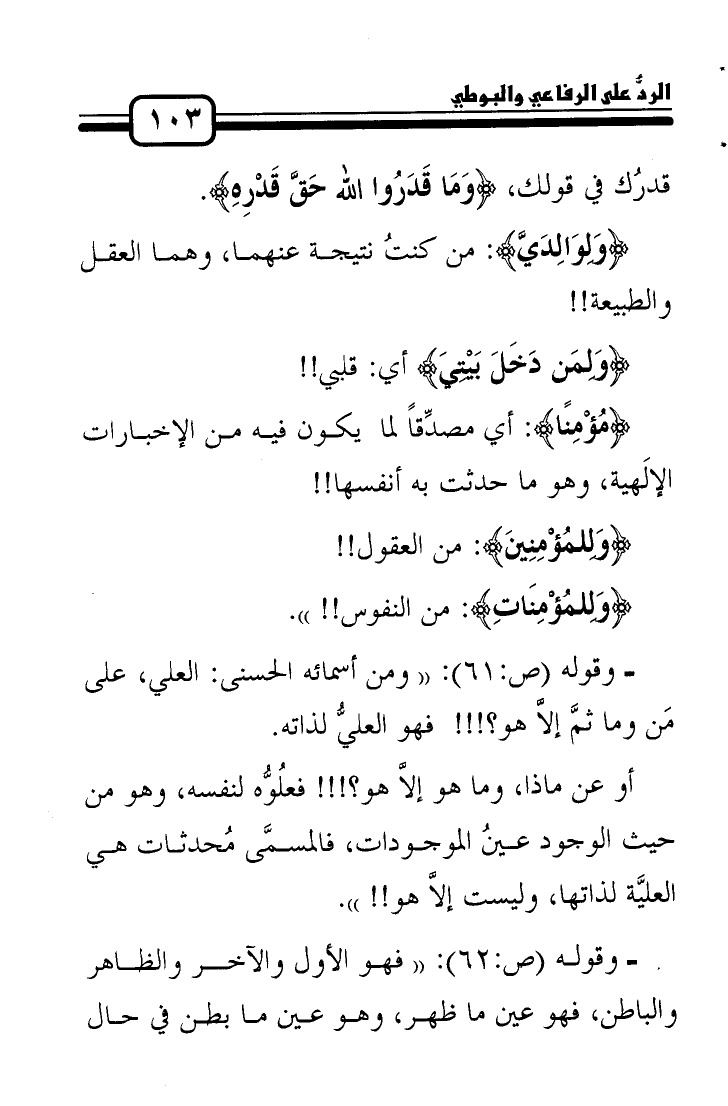 الردُّ على الرفاعي والبوطي
١٠٣
قدرُك في قولك، ﴿وَمَا قَدَرُوا الله حَقَّ قَدْرِهِ﴾.
﴿وَلِوَالِدَيَّ﴾: من كنتُ نتيجة عنهما، وهما العقل
والطبيعة!!
﴿وَلِمَن دَخَلَ بَيْتِيَ﴾ أي: قلبي!!
﴿مُؤْمِنًا﴾: أي مصدِّقاً لما يكون فيه من الإخبارات
الإلَهية، وهو ما حدثت به أنفسها!!
﴿وَلِلمُؤْمِنِينَ﴾: من العقول!!
﴿وَلِلمُؤْمِنَاتِ﴾: من النفوس!! )).
- وقوله (ص:٦١): (( ومن أسمائه الحسنى: العلي، على
مَن وما ثمَّ إلاَّ هو؟!!! فهو العليُّ لذاته.
أو عن ماذا، وما هو إلاَّ هو؟!!! فعلُوُّه لنفسه، وهو من
حيث الوجود عينُ الموجودات، فالمسمَّى مُحدثات هي
العليَّة لذاتها، وليست إلاَّ هو!! )).
- وقوله (ص:٦٢): (( فهو الأول والآخر والظاهر
والباطن، فهو عين ما ظهر، وهو عين ما بطن في حال